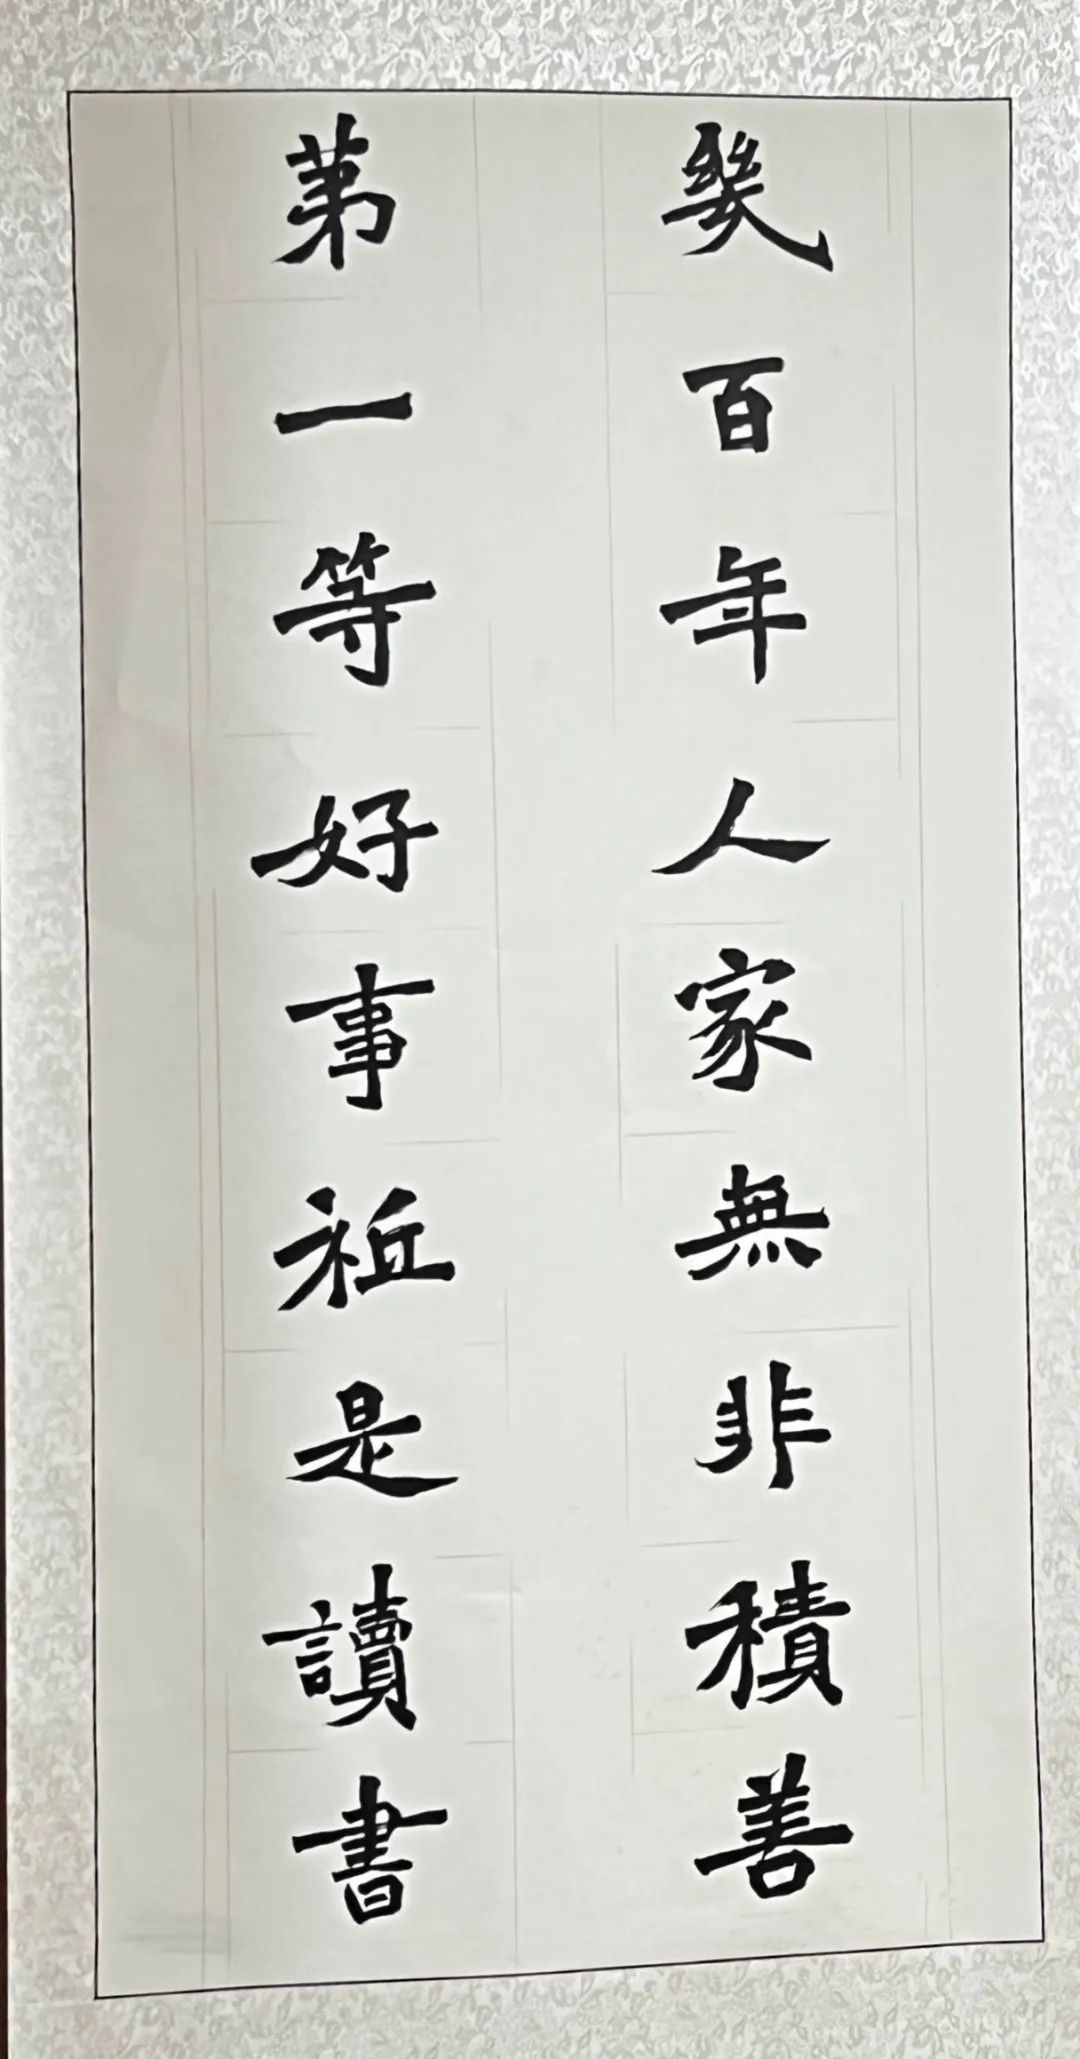 幾百年人家無非積善
第一等好事祗是讀書